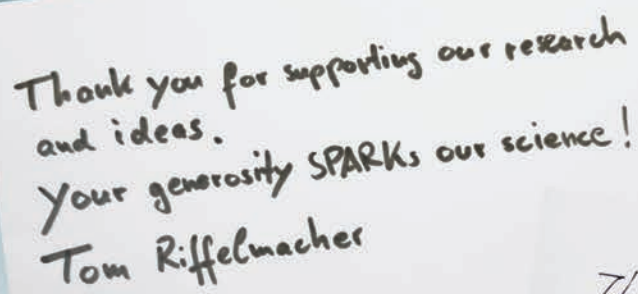 Thank you for supporting our research
and ideas.
Your generosity SPARKs our science!
Tom Riffelmacher